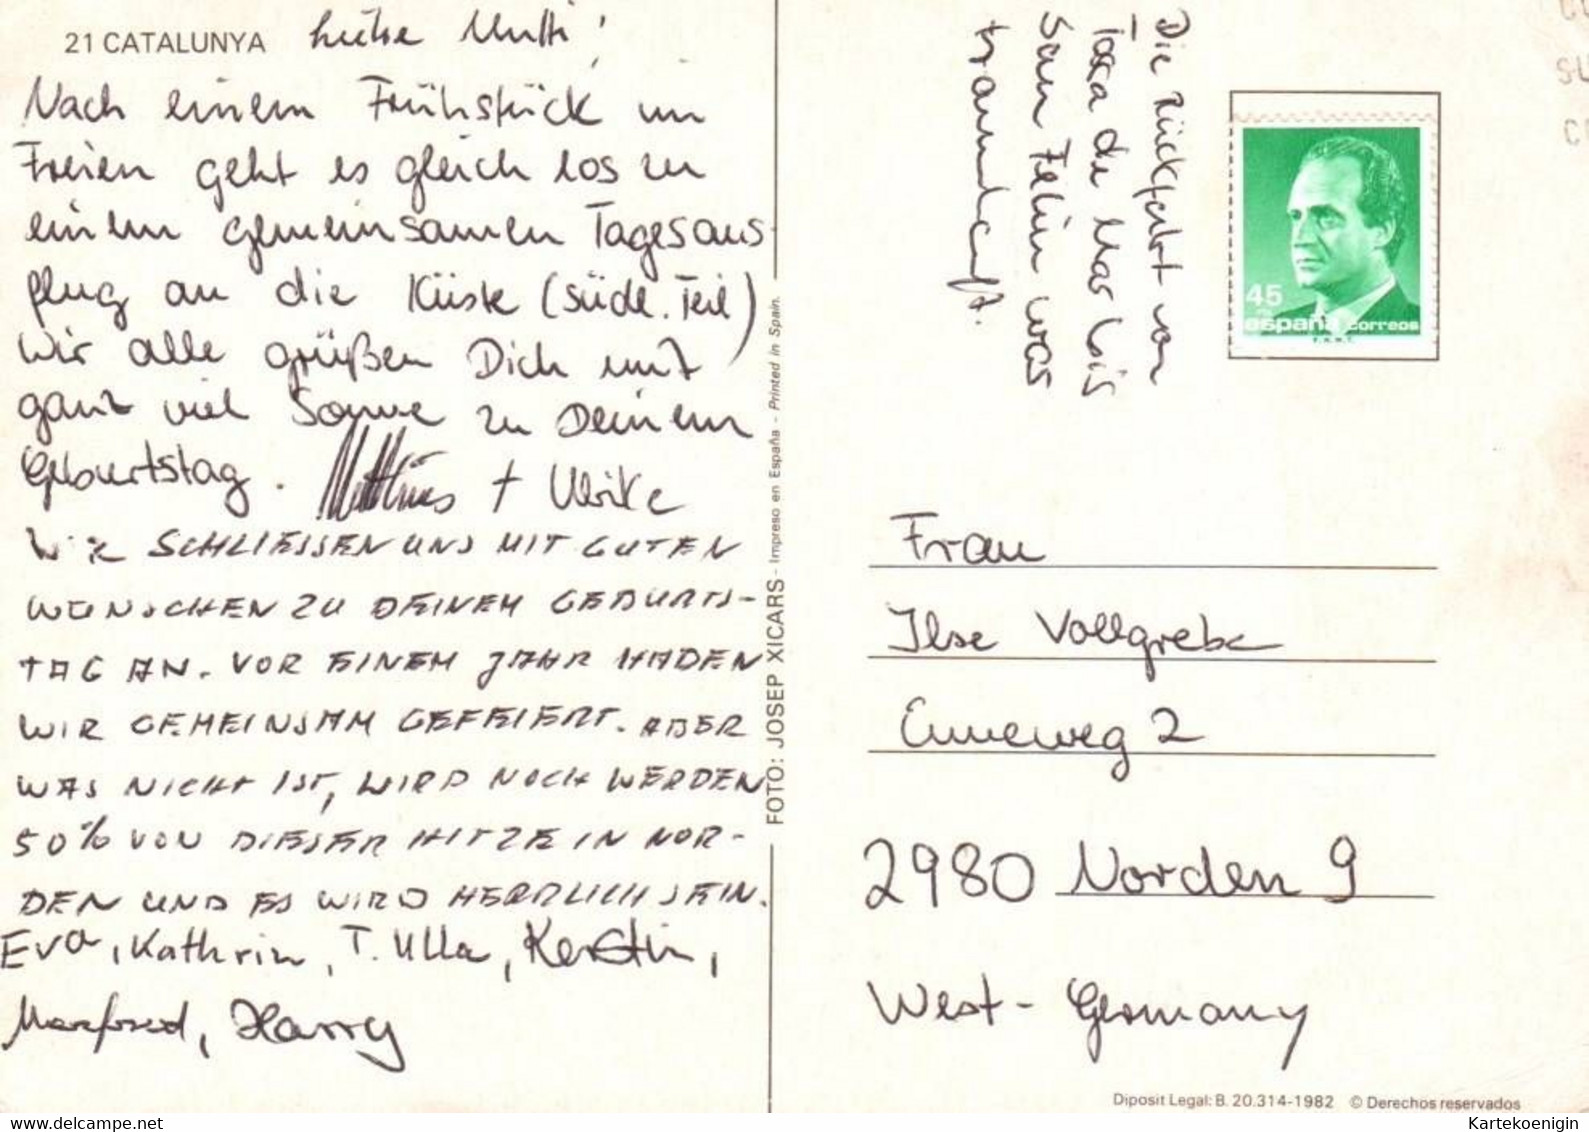 21 CATALUNYA
Liebe Mutti!
Nach einem Frühstück im
Freien geht es gleich los zu
einem gemeinsamen Tagesaus-
flug an die Küste (südl. Teil)
Wir alle grüßen Dich mit
ganz viel Sonne zu Deinem
Geburtstag. Matthias + Ulrike
WIR SCHLIESSEN UNS MIT GUTEN
WÜNSCHEN ZU DEINEM GEBURTS-
TAG AN. VOR EINEM JAHR HABEN
WIR GEMEINSAM GEFEIERT. ABER
WAS NICHT IST, WIRD NOCH WERDEN
50% VON DIESER HITZE IN NOR-
DEN UND ES WIRD HERRLICH SEIN.
Eva, Kathrin, T. Ulla, Kerstin,
Manfred, Harry
FOTO: JOSEP XICARS - Impreso en España - Printed in Spain.
Die Rückfahrt von
Tossa de Mar bis
San Feliu was
traumhaft.
45
PTA
españa correos
F.N.M.T.
Frau
Ilse Vollgrebe
Emeweg 2
2980 Norden 9
West-Germany
Diposit Legal: B. 20.314-1982 © Derechos reservados
delcampe.net
Kartekoenigin